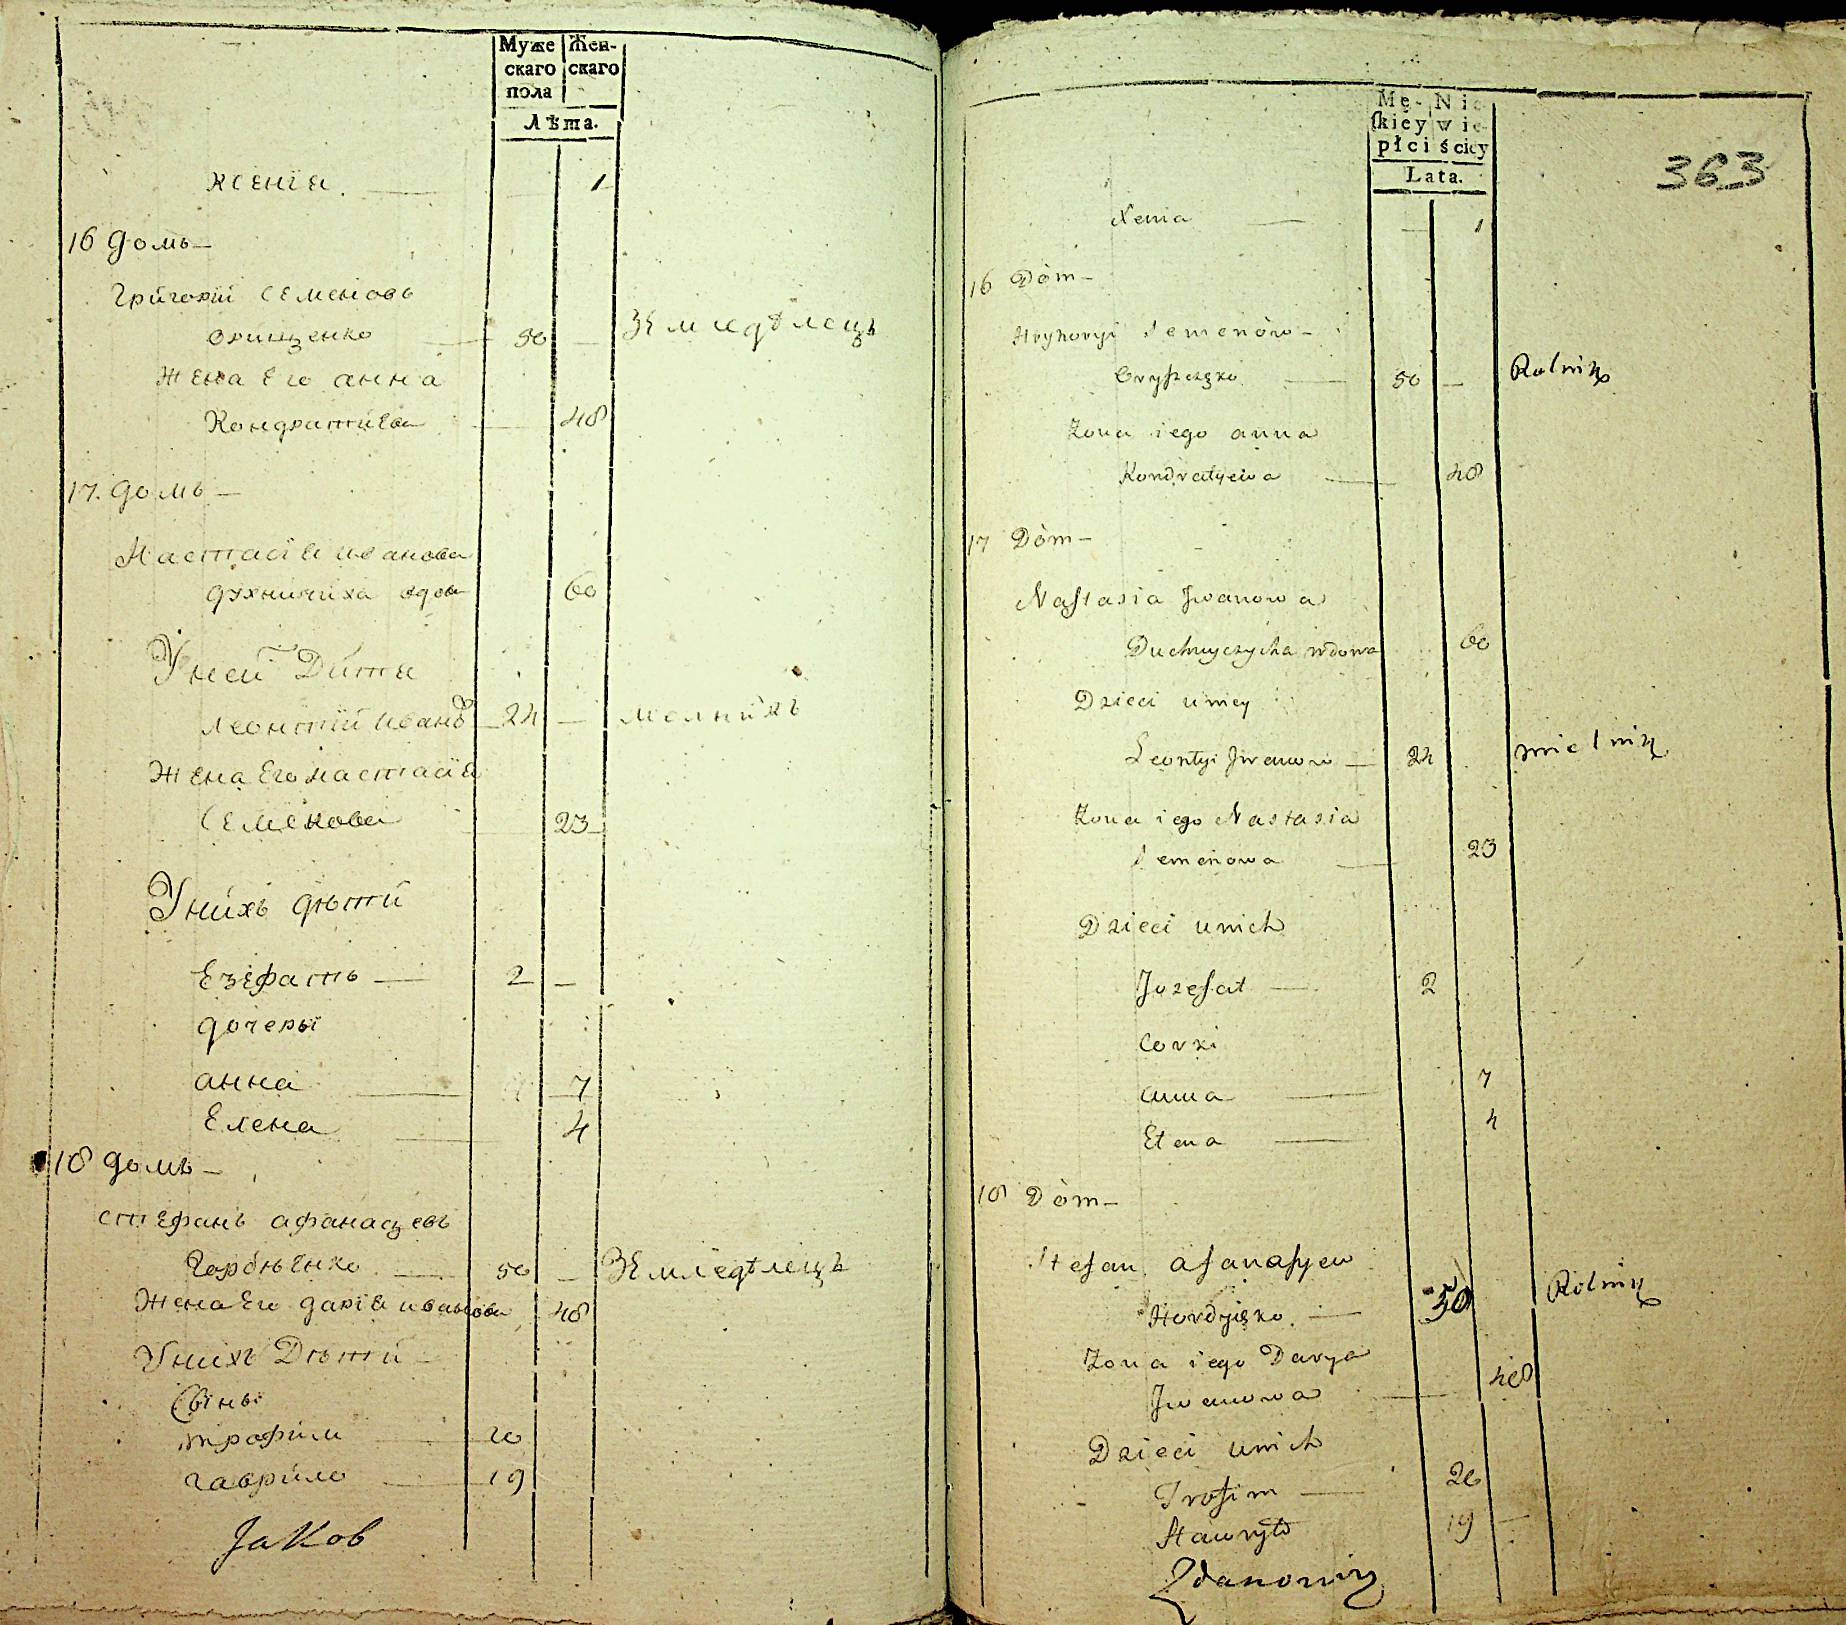 Муже Жен-
скаго скаго
пола
Лѣта.
Ксенїя 1
16 домъ
Григорїй Семеновъ
Орищенко 50 — Земледѣлецъ
Жена его анна
Кондратиева 48
17. домъ
Настасїя иванова
духничиха вдова 60
У ней Дити
леонтїй иванов 24 — мелникъ
Жена его настасїя
Семенова 23
У нихъ дѣти
Езефатъ 2 —
дочеры
анна 7
Елена 4
18 домъ
стефанъ афанасцевъ
Гордѣенко 50 — Земледѣлецъ
Жена его дарїя иванова 48
У нихъ Дѣти
Сины
трофим 20
гаврило 19
Jakob
Mę- Nie
skiéy wie-
płci ściey
Lata.
363
Xenia — 1
16 Dòm
Hryhoryi Semenów
Oryszczęko 50 — Rolnik
Żona iego anna
Kondratyewa 48
17 Dòm
Nastasia Jwanowa
Duchnyczycha wdowa 60
Dzieci u niey
Leontyi Jwanow 24 mielnik
Żona iego Nastasia
Semenowa 23
Dzieci u nich
Jozefat 2
Corki
anna 7
Elena 4
18 Dòm
Stefan afanasyew
Hordyięko 50 Rolnik
Żona iego Darya
Jwanowa 48
Dzieci u nich
Trofim 20
Hawryło 19 —
Zdanowicz